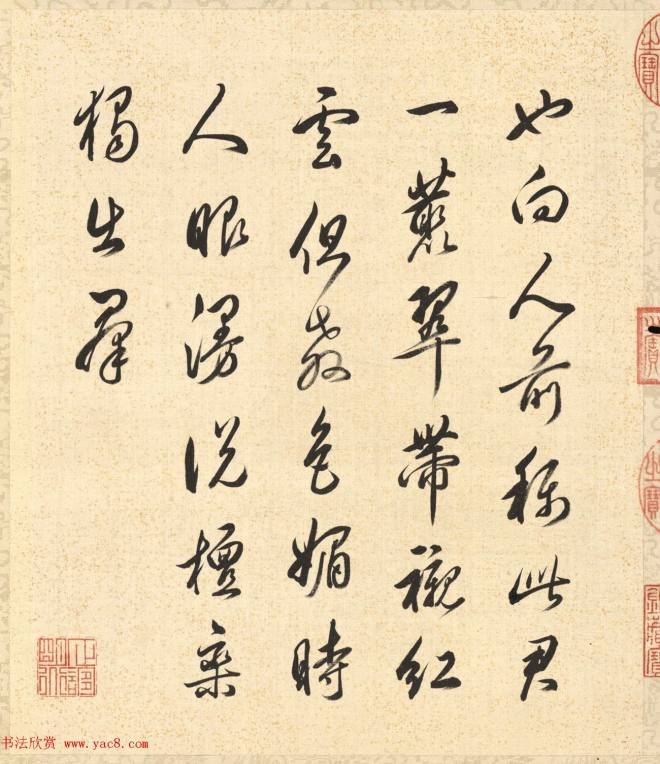 也向人前称此君
一叢翠帶襯紅
雲但教色媚時
人眼漫說檀欒
獨出羣
书法欣赏 www.yac8.com